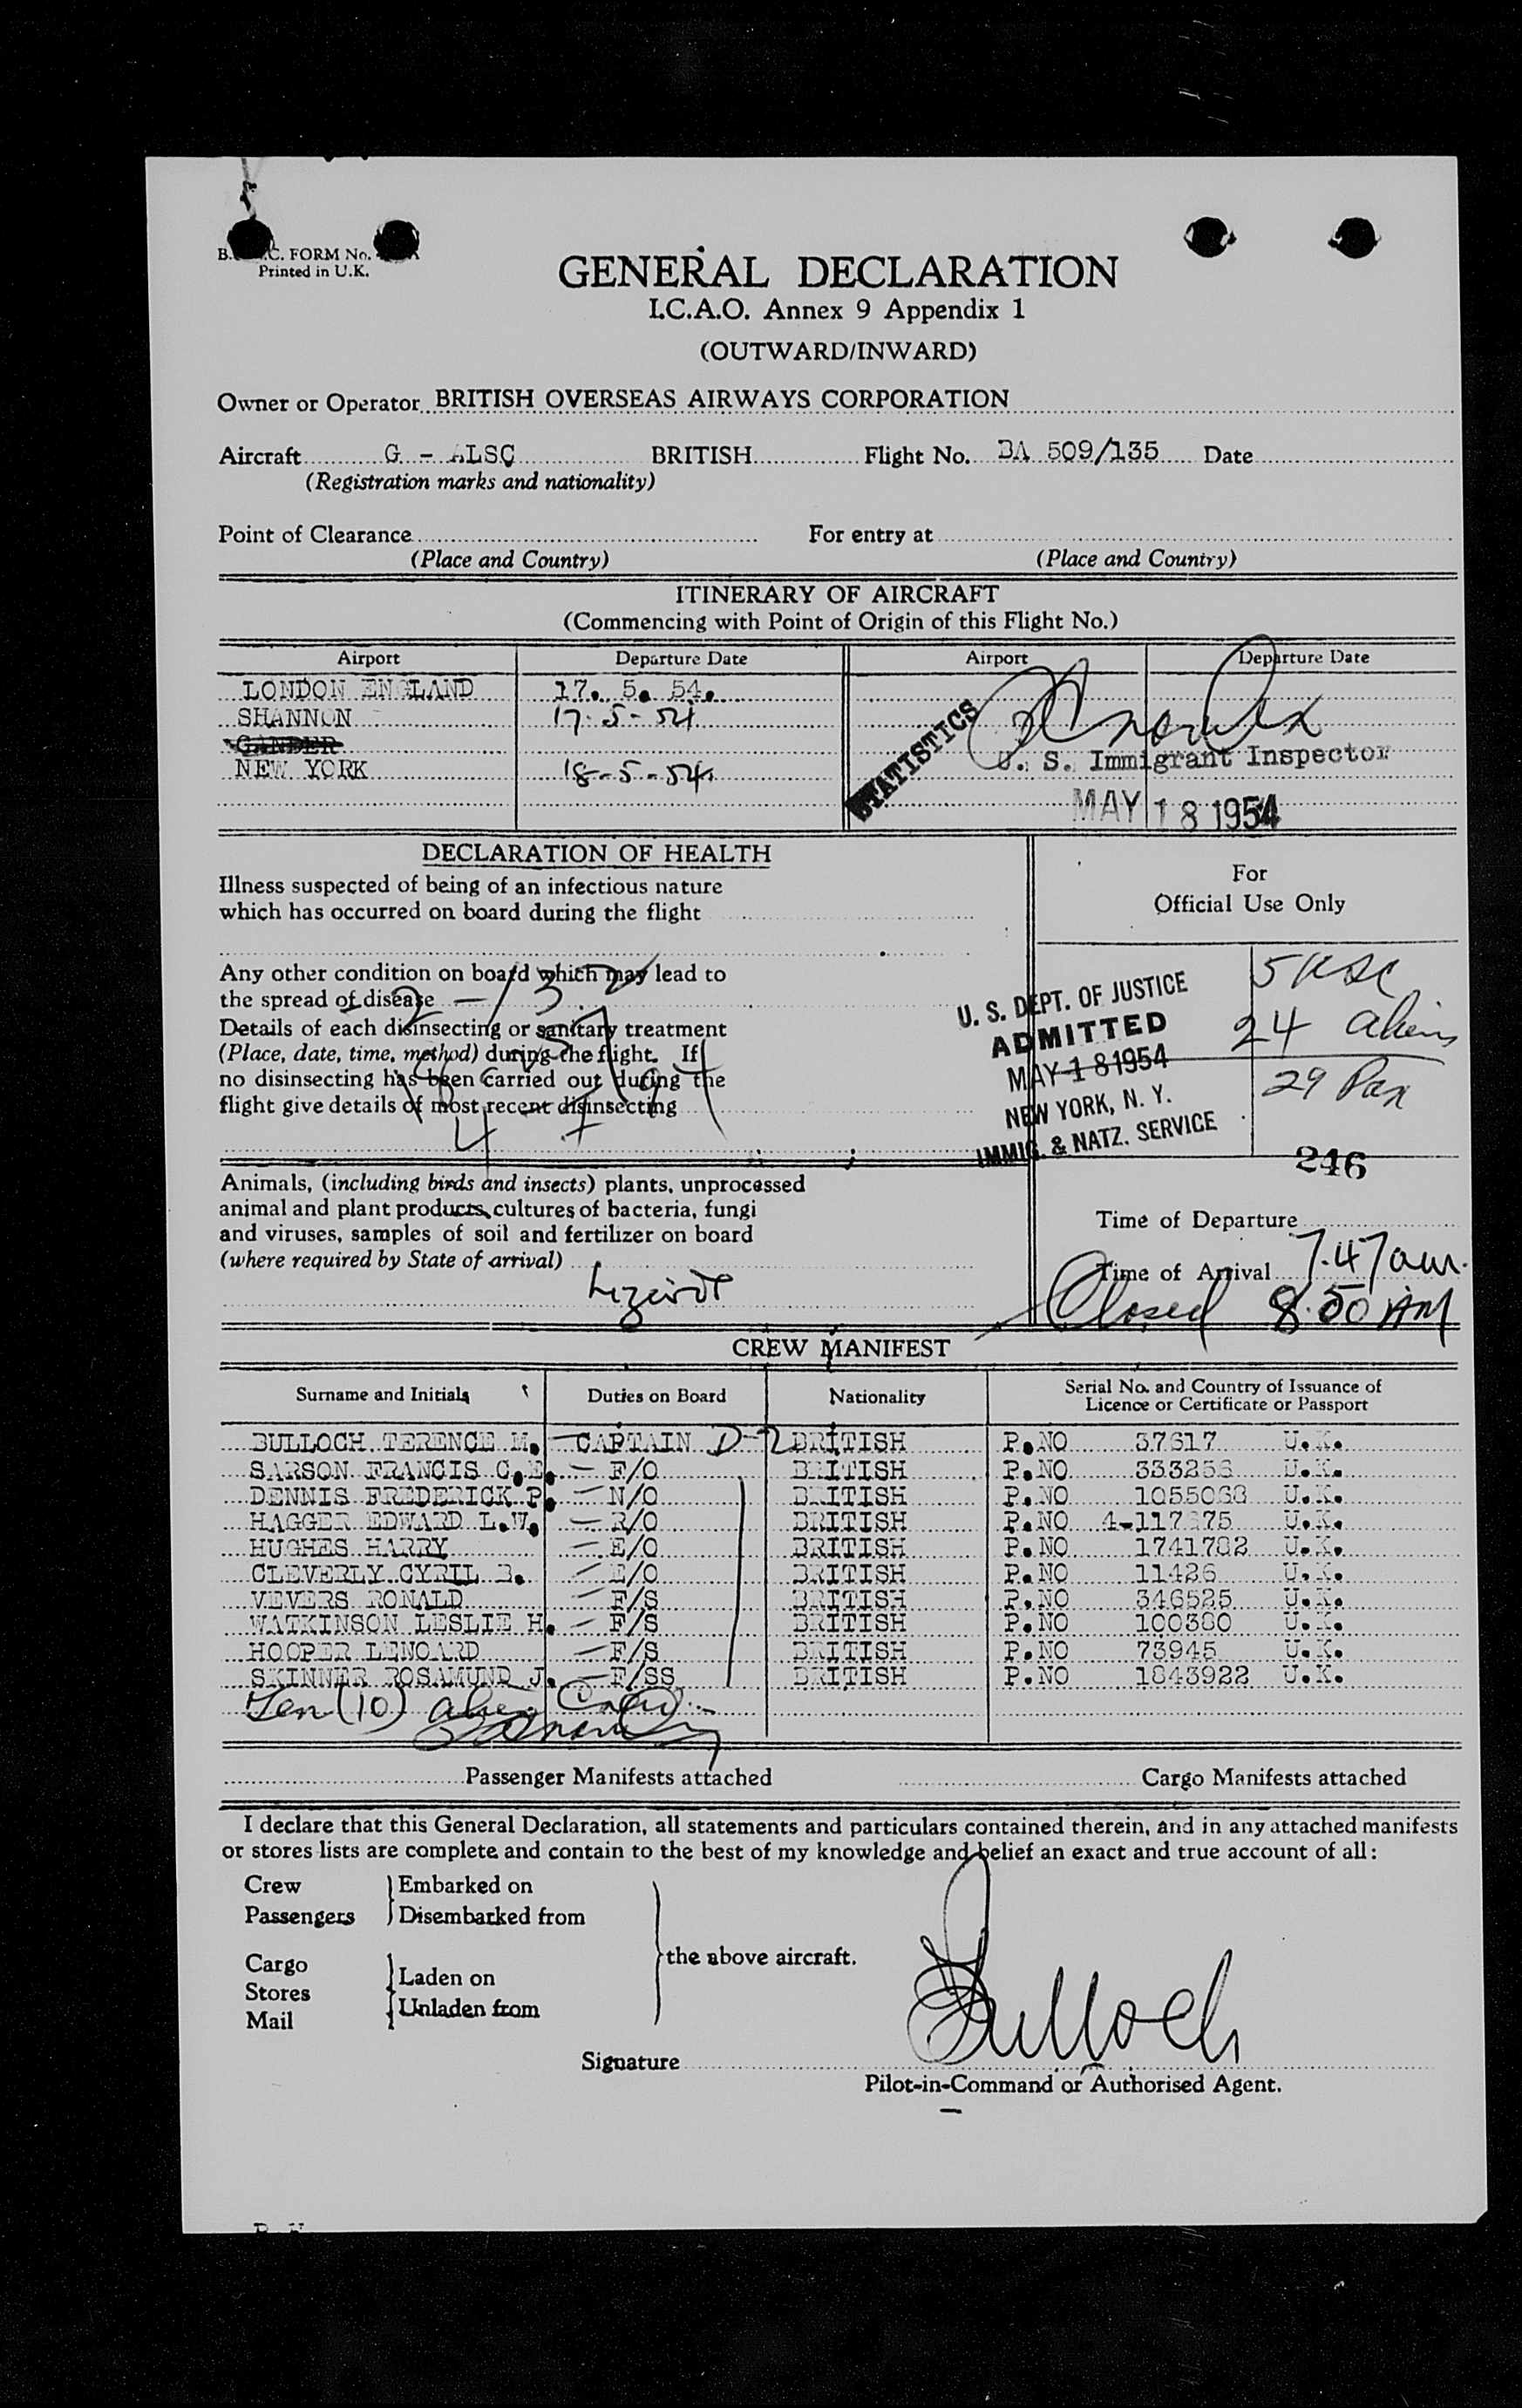 C. FORM No.
Printed in U.K.
GENERAL DECLARATION
I.C.A.O. Annex 9 Appendix 1
(OUTWARD/INWARD)
Owner or Operator BRITISH OVERSEAS AIRWAYS CORPORATION
Aircraft G - ALSC BRITISH Flight No. BA 509/135 Date
(Registration marks and nationality)
Point of Clearance For entry at
(Place and Country) (Place and Country)
ITINERARY OF AIRCRAFT
(Commencing with Point of Origin of this Flight No.)
Airport Departure Date Airport Departure Date
LONDON ENGLAND 17. 5. 54.
SHANNON 17-5-54
GANDER
NEW YORK 18-5-54
STATISTICS
U. S. Immigrant Inspector
MAY 18 1954
DECLARATION OF HEALTH
Illness suspected of being of an infectious nature
which has occurred on board during the flight
Any other condition on board which may lead to
the spread of disease
Details of each disinsecting or sanitary treatment
(Place, date, time, method) during the flight. If
no disinsecting has been carried out during the
flight give details of most recent disinsecting
For
Official Use Only
5 USC
24 aliens
29 Pax
U. S. DEPT. OF JUSTICE
ADMITTED
MAY 18 1954
NEW YORK, N. Y.
IMMIG. & NATZ. SERVICE
246
Animals, (including birds and insects) plants, unprocessed
animal and plant products, cultures of bacteria, fungi
and viruses, samples of soil and fertilizer on board
(where required by State of arrival)
Time of Departure
Time of Arrival 7.47 am.
Closed 8.50 AM
CREW MANIFEST
Surname and Initials Duties on Board Nationality Serial No. and Country of Issuance of
Licence or Certificate or Passport
BULLOCH TERENCE M. CAPTAIN D-2 BRITISH P.NO 37617 U.K.
SARSON FRANCIS C.E. F/O BRITISH P.NO 333256 U.K.
DENNIS FREDERICK P. N/O BRITISH P.NO 1055068 U.K.
HAGGER EDWARD L.W. R/O BRITISH P.NO U.K.
HUGHES HARRY E/O BRITISH P.NO 1741782 U.K.
CLEVERLY CYRIL B. E/O BRITISH P.NO 11426 U.K.
VEVERS RONALD F/S BRITISH P.NO 346525 U.K.
WATKINSON LESLIE H. F/S BRITISH P.NO 100380 U.K.
HOOPER LENOARD F/S BRITISH P.NO 73945 U.K.
SKINNER ROSAMUND J. F/SS BRITISH P.NO 1843922 U.K.
Ten (10) alien Crew
Passenger Manifests attached Cargo Manifests attached
I declare that this General Declaration, all statements and particulars contained therein, and in any attached manifests
or stores lists are complete and contain to the best of my knowledge and belief an exact and true account of all:
Crew Embarked on
Passengers Disembarked from
the above aircraft.
Cargo Laden on
Stores
Mail Unladen from
Bulloch
Signature
Pilot-in-Command or Authorised Agent.